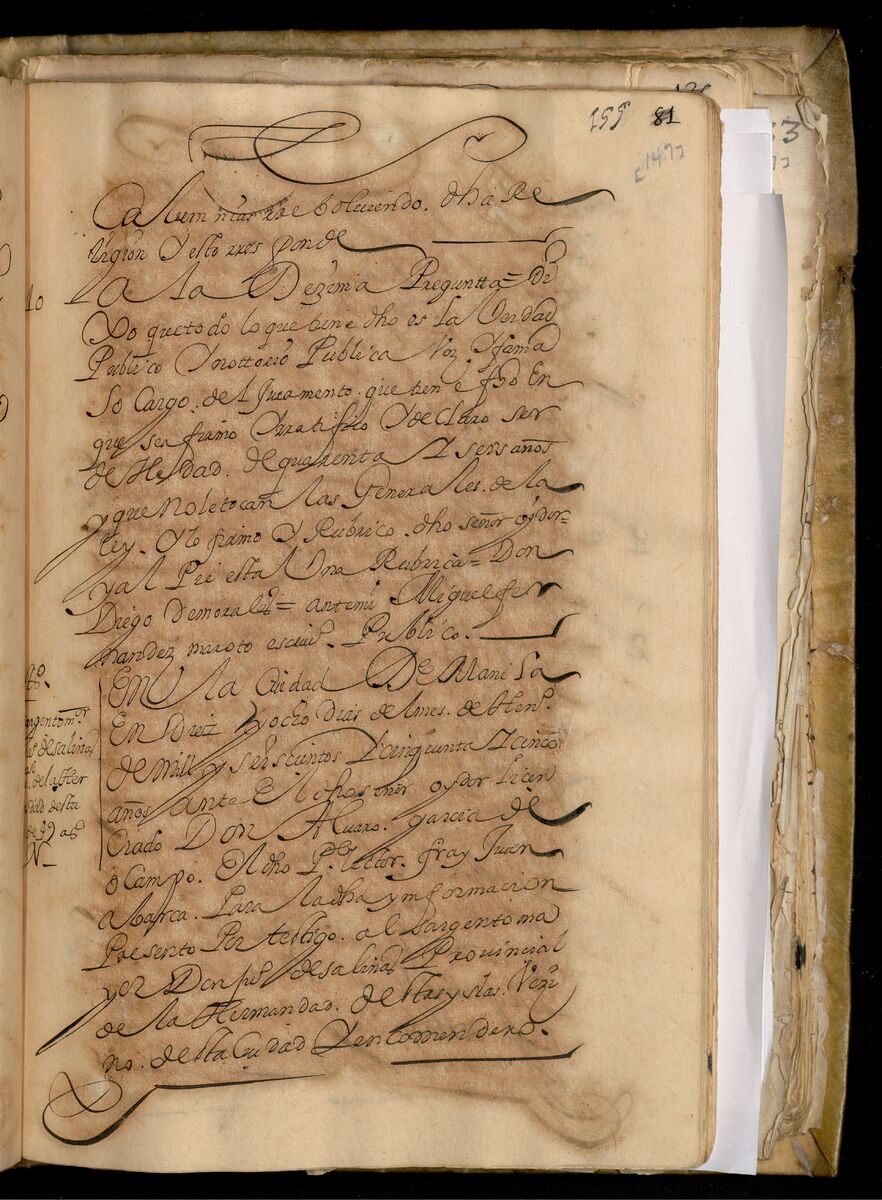 155 81
[147]
Calumnias rrebolbiendo. dha Re
ligion Y esto rresponde
10 A la Dezima Pregunta= Di
xo que todo lo que tiene dho es la Verdad
Publico Y nottorio Publica Voz Y fama
So Cargo. del Juramento. que tiene fho En
que se afirmo Y rratifico Y declaro ser
de Hedad. de quarenta Y seis años
y que No le tocan las Generales. de la
ley. Y lo firmo Y Rubrico. dho señor oydor=
y al Pie esta Una Rubrica= Don
Diego de morales= antemi Miguel fer
nandez maroto escriuo. Publico.
EN la Ciudad De Manila
En Dieiz y ocho dias del mes. de Heno.
de mill y seiscientos Y cinquenta Y cinco
años ante El dho señor oydor licen
ciado Don Aluaro. garcia de
o Campo. El dho Pe. letor. fray Juan
abarca. Para la dha ynformacion
Presento Por testigo. al sargento ma
yor Don de salinas Provincial
de la Hermandad. destas yslas. Vezi
no. desta Ciudad Y encomendero.
to.
argentomor
de salinas
de la Her
dad desta
de 49 as
N